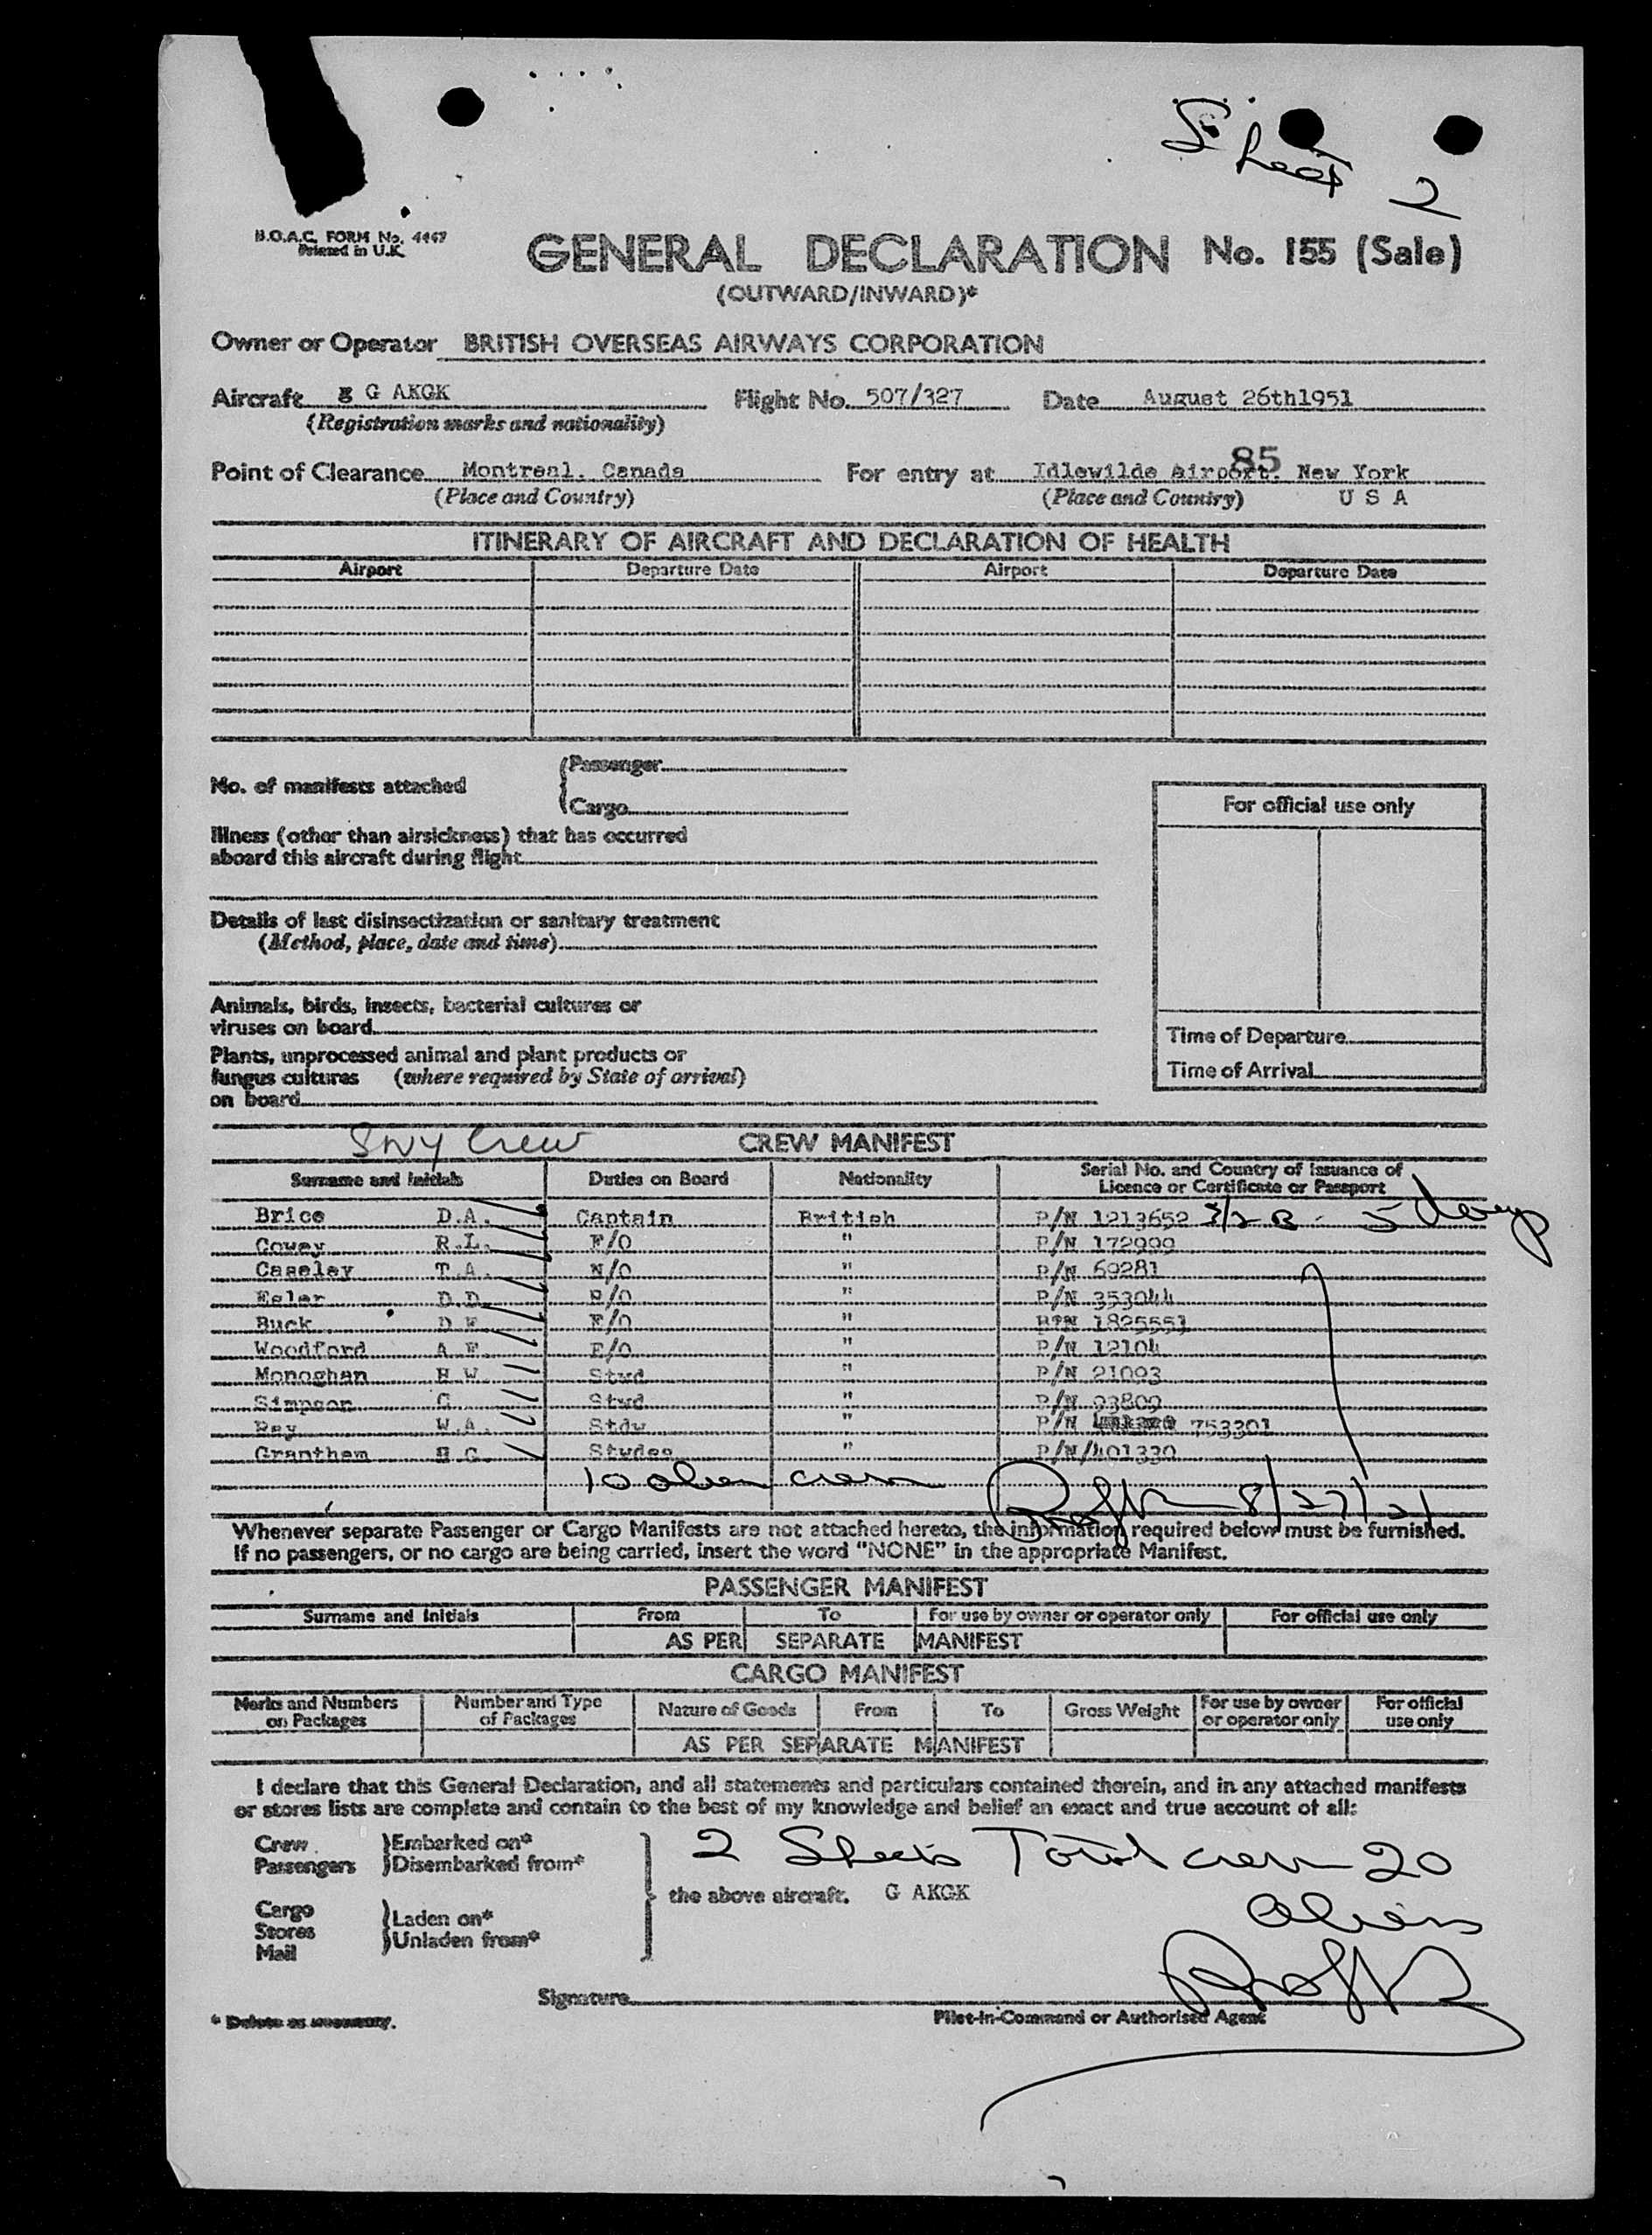 Sheet 2
B.O.A.C. FORM No. 4467
Printed in U.K.
GENERAL DECLARATION No. 155 (Sale)
(OUTWARD/INWARD)*
Owner or Operator BRITISH OVERSEAS AIRWAYS CORPORATION
Aircraft G AKGK Flight No. 507/327 Date August 26th1951
(Registration marks and nationality)
85
Point of Clearance Montreal. Canada For entry at Idlewilde Airport. New York
(Place and Country) (Place and Country) U S A
ITINERARY OF AIRCRAFT AND DECLARATION OF HEALTH
Airport Departure Date Airport Departure Date
No. of manifests attached Passenger
Cargo
For official use only
Illness (other than airsickness) that has occurred
aboard this aircraft during flight
Details of last disinsectization or sanitary treatment
(Method, place, date and time)
Animals, birds, insects, bacterial cultures or
viruses on board
Time of Departure
Plants, unprocessed animal and plant products or
fungus cultures (where required by State of arrival)
Time of Arrival
on board
Crew CREW MANIFEST
Surname and Initials Duties on Board Nationality Serial No. and Country of Issuance of
Licence or Certificate or Passport
Brice D.A. Captain British P/N 1213652
Cowey R.L. F/O " P/N 172999
Caseley T.A. N/O " P/N 69281
Esler D.D. R/O " P/N 353044
Buck D. F/O " 1825551
Woodford A E/O " P/N 12104
Monoghan H W Stwd " P/N 21093
Simpson Stwd " P/N 93809
W.A. Stdw " P/N 753301
Grantham H G. Stwdes " P/N/401330
10 alien crew 8/27/51
Whenever separate Passenger or Cargo Manifests are not attached hereto, the information required below must be furnished.
If no passengers, or no cargo are being carried, insert the word "NONE" in the appropriate Manifest.
PASSENGER MANIFEST
Surname and Initials From To For use by owner or operator only For official use only
AS PER SEPARATE MANIFEST
CARGO MANIFEST
Marks and Numbers on Packages Number and Type of Packages Nature of Goods From To Gross Weight For use by owner or operator only For official use only
AS PER SEPARATE MANIFEST
I declare that this General Declaration, and all statements and particulars contained therein, and in any attached manifests
or stores lists are complete and contain to the best of my knowledge and belief an exact and true account of all:
Crew Embarked on* 2 Sheets Total crew 20
Passengers Disembarked from*
the above aircraft. G AKGK
Aliens
Cargo Laden on*
Stores Unladen from*
Mail
Signature
* Delete as necessary. Pilot-in-Command or Authorised Agent